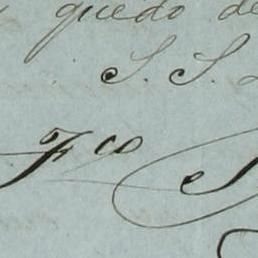 y quedo de
S. S. S
Fco S